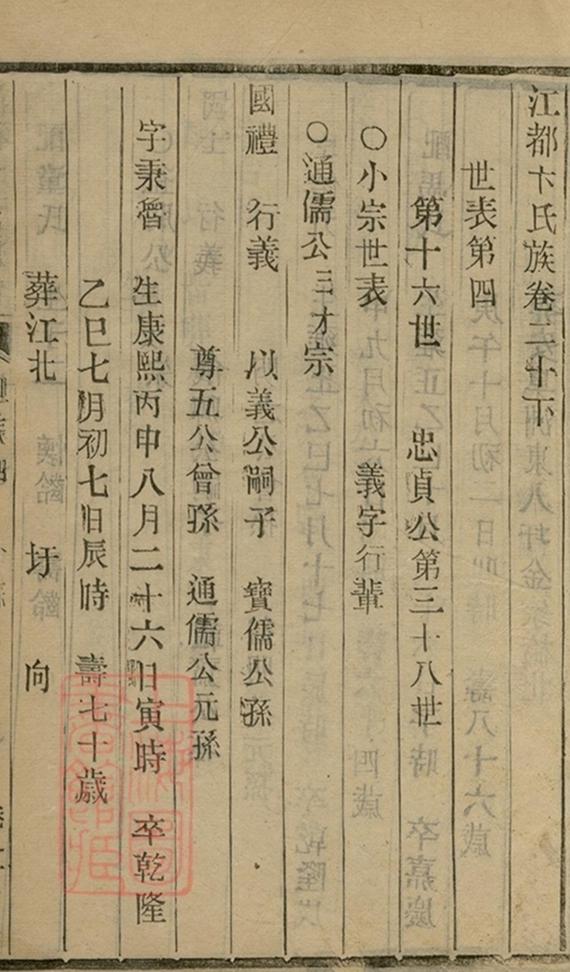 江都卞氏族卷二十下
世表第四
第十六世 忠貞公第三十八世
○小宗世表 義字行輩
○通儒公三才宗
國禮 行義 以義公嗣子 寶儒公孫
尊五公曾孫 通儒公元孫
字秉魯 生康熙丙申八月二十六日寅時 卒乾隆
乙巳七月初七日辰時 壽七十歲
葬江北 圩 向